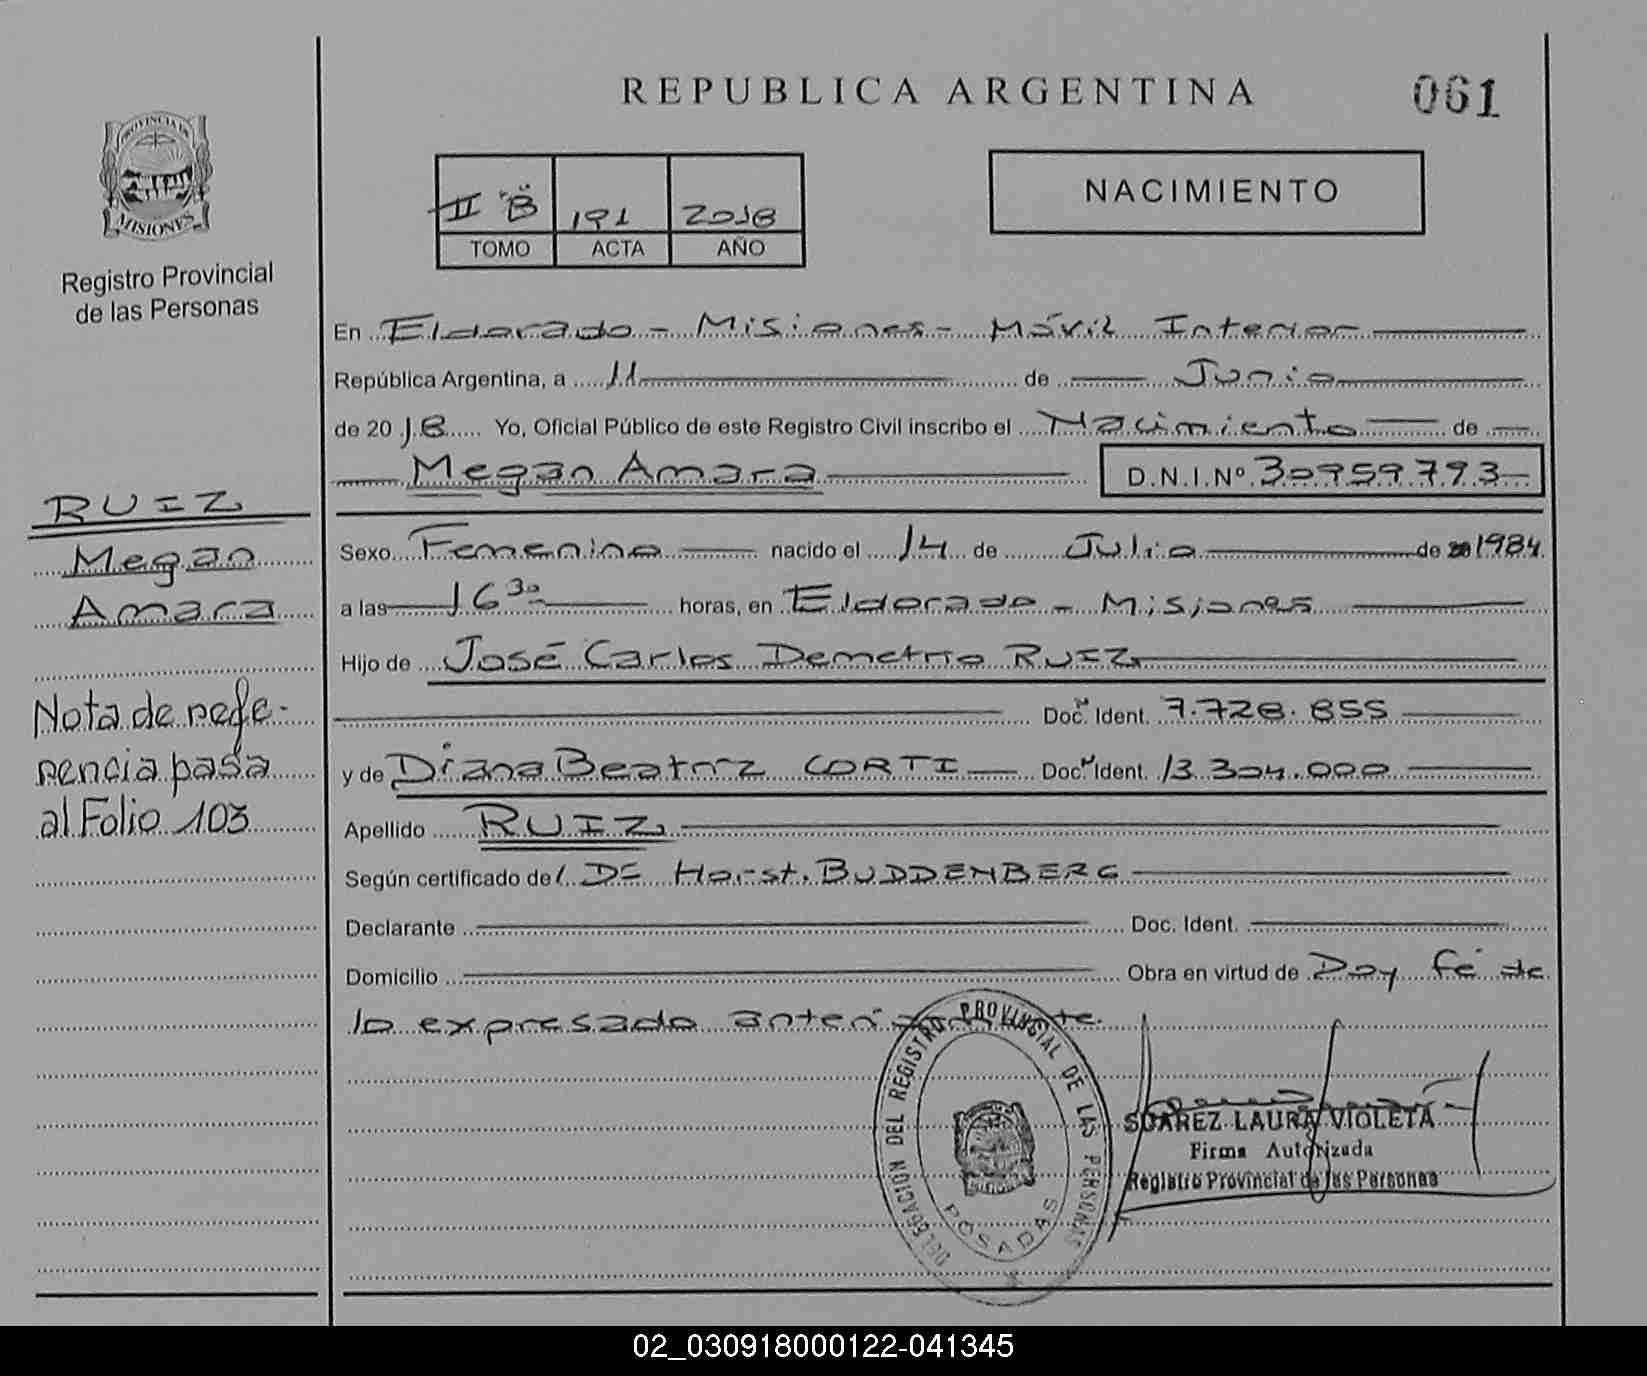 REPUBLICA ARGENTINA
061
PROVINCIA DE
MISIONES
Registro Provincial
de las Personas
II "B" 191 2018
TOMO ACTA AÑO
NACIMIENTO
En Eldorado - Misiones - Móvil Interior
República Argentina, a 11 de Junio
de 2018 Yo, Oficial Público de este Registro Civil inscribo el Nacimiento de
Megan Amara D.N.I.Nº 30959793
Sexo Femenino nacido el 14 de Julio de 1984
a las 16 30 horas, en Eldorado - Misiones
Hijo de José Carlos Demetrio RUIZ
Doc. Ident. 7.728.855
y de Diana Beatriz CORTI Doc. Ident. 13.304.000
Apellido RUIZ
Según certificado del Horst. BUDDENBERG
Declarante Doc. Ident.
Domicilio Obra en virtud de Doy fé de
lo expresado
RUIZ
Megan
Amara
Nota de refe-
rencia pasa
al Folio 103
DELEGACIÓN DEL REGISTRO PROVINCIAL DE LAS PERSONAS
POSADAS
SUAREZ LAURA VIOLETA
Firma Autorizada
Registro Provincial de las Personas
02_030918000122-041345